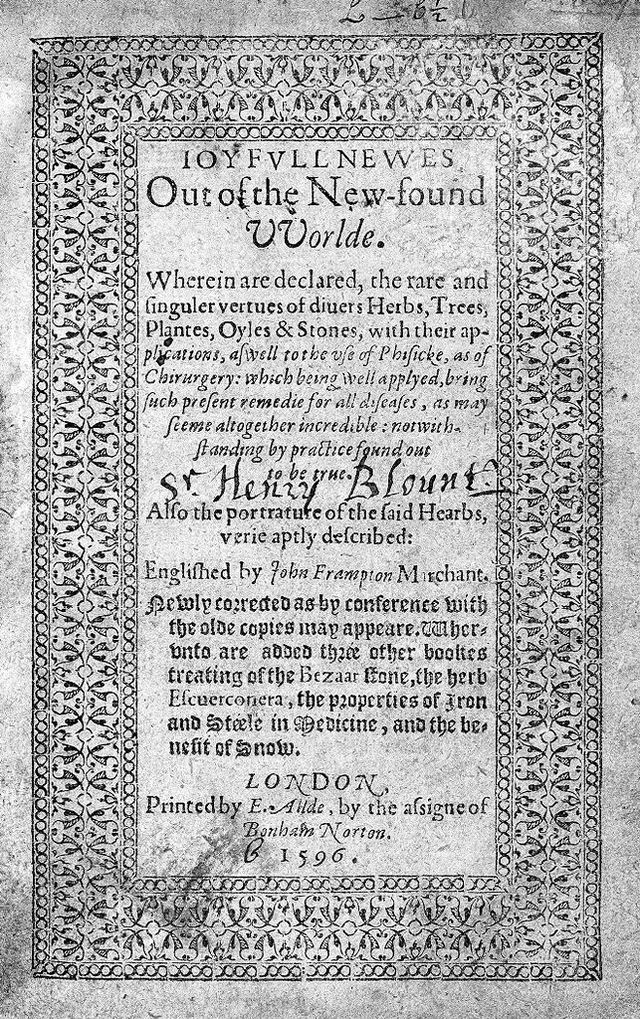 IOYFVLL NEWES
Out of the New-found
VVorlde.
Wherein are declared, the rare and
ſinguler vertues of diuers Herbs, Trees,
Plantes, Oyles & Stones, with their ap-
plications, aſwell to the vſe of Phiſicke, as of
Chirurgery: which being well applyed, bring
ſuch present remedie for all diſeaſes, as may
ſeeme altogether incredible: notwith-
ſtanding by practice found out
to be true.
Sr. Henry Blount
Alſo the portrature of the ſaid Hearbs,
verie aptly deſcribed:
Engliſhed by John Frampton Marchant.
Newly corrected as by conference with
the olde copies may appeare. Wher-
vnto are added three other bookes
treating of the Bezaar ſtone, the herb
Eſcuerconera, the properties of Iron
and Steele in Medicine, and the be-
nefit of Snow.
LONDON,
Printed by E. Allde, by the aſſigne of
Bonham Norton.
1596.